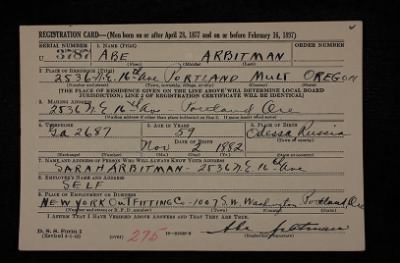 REGISTRATION CARD—(Men born on or after April 28, 1877 and on or before February 16, 1897)
SERIAL NUMBER 1. NAME (Print) ORDER NUMBER
U 3787 ABE ARBITMAN
(First) (Middle) (Last)
2. PLACE OF RESIDENCE (Print)
2536 N.E. 16th Ave PORTLAND MULT OREGON
(Number and street) (Town, township, village, or city) (County) (State)
[THE PLACE OF RESIDENCE GIVEN ON THE LINE ABOVE WILL DETERMINE LOCAL BOARD
JURISDICTION; LINE 2 OF REGISTRATION CERTIFICATE WILL BE IDENTICAL]
3. MAILING ADDRESS
2536 N.E. 16th Ave Portland Ore
(Mailing address if other than place indicated on line 2. If same insert word same)
4. TELEPHONE 5. AGE IN YEARS 6. PLACE OF BIRTH
Ga 2687 59 Odessa Russia
DATE OF BIRTH
Nov 2 1882
(Mo.) (Day) (Yr.)
7. NAME AND ADDRESS OF PERSON WHO WILL ALWAYS KNOW YOUR ADDRESS
SARAH ARBITMAN - 2536 N.E. 16th Ave
8. EMPLOYER'S NAME AND ADDRESS
SELF
9. PLACE OF EMPLOYMENT OR BUSINESS
NEW YORK OUTFITTING Co - 1007 S.W. Washington Portland Ore
(Number and street or R. F. D. number) (Town) (County) (State)
I AFFIRM THAT I HAVE VERIFIED ABOVE ANSWERS AND THAT THEY ARE TRUE.
D. S. S. Form 1 (over) 275 Abe Arbitman
(Registrant's signature)